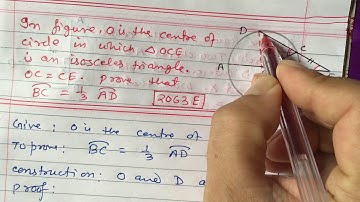 In figure, O is the centre of
circle in which △OCE
is an isosceles triangle.
OC = CE. prove that
BC = 1/3 AD 2063 E
D
C
A
Give : O is the centre of
To prove: BC = 1/3 AD
construction: O and D a
proof: